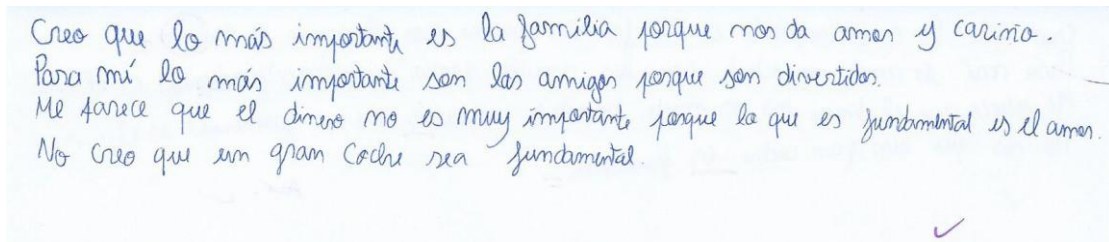 Creo que lo más importante es la familia porque nos da amor y cariño.
Para mí lo más importante son los amigos porque son divertidos.
Me parece que el dinero no es muy importante porque lo que es fundamental es el amor.
No creo que un gran coche sea fundamental.